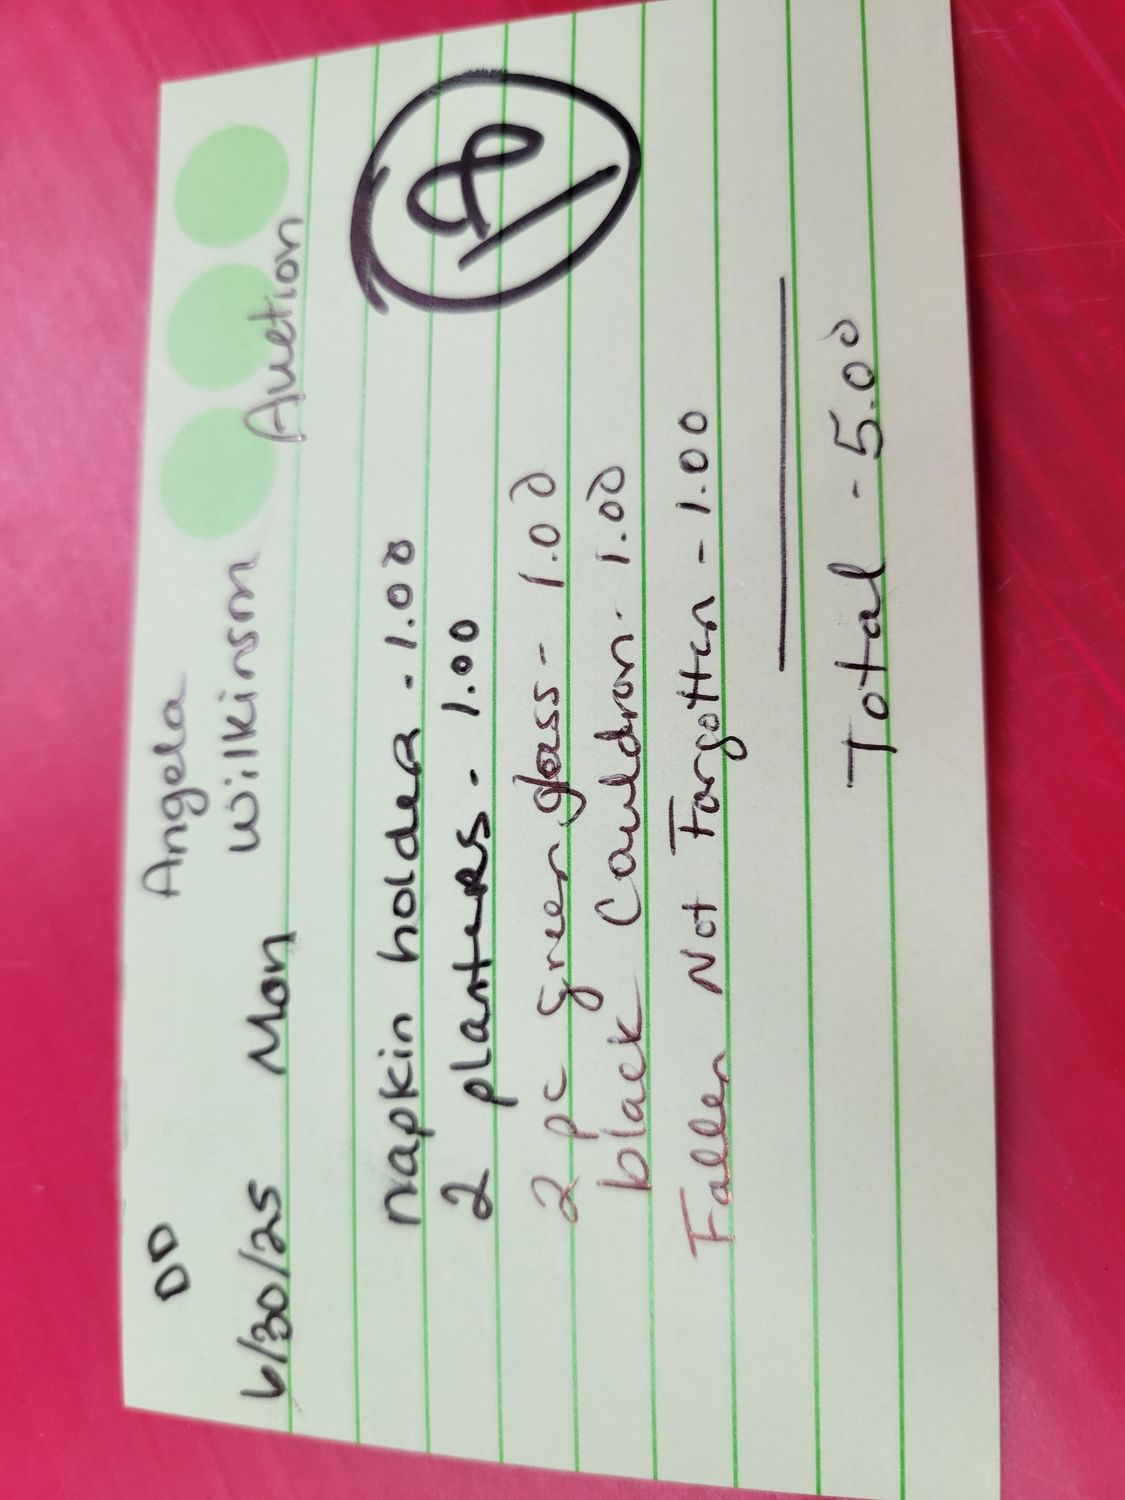 DD Angela
6/30/25 Mon Wilkinson Auction
napkin holder - 1.00
2 planters - 1.00
2 pc green glass - 1.00
black Cauldron - 1.00
Fallen Not Forgotten - 1.00
Total - 5.00